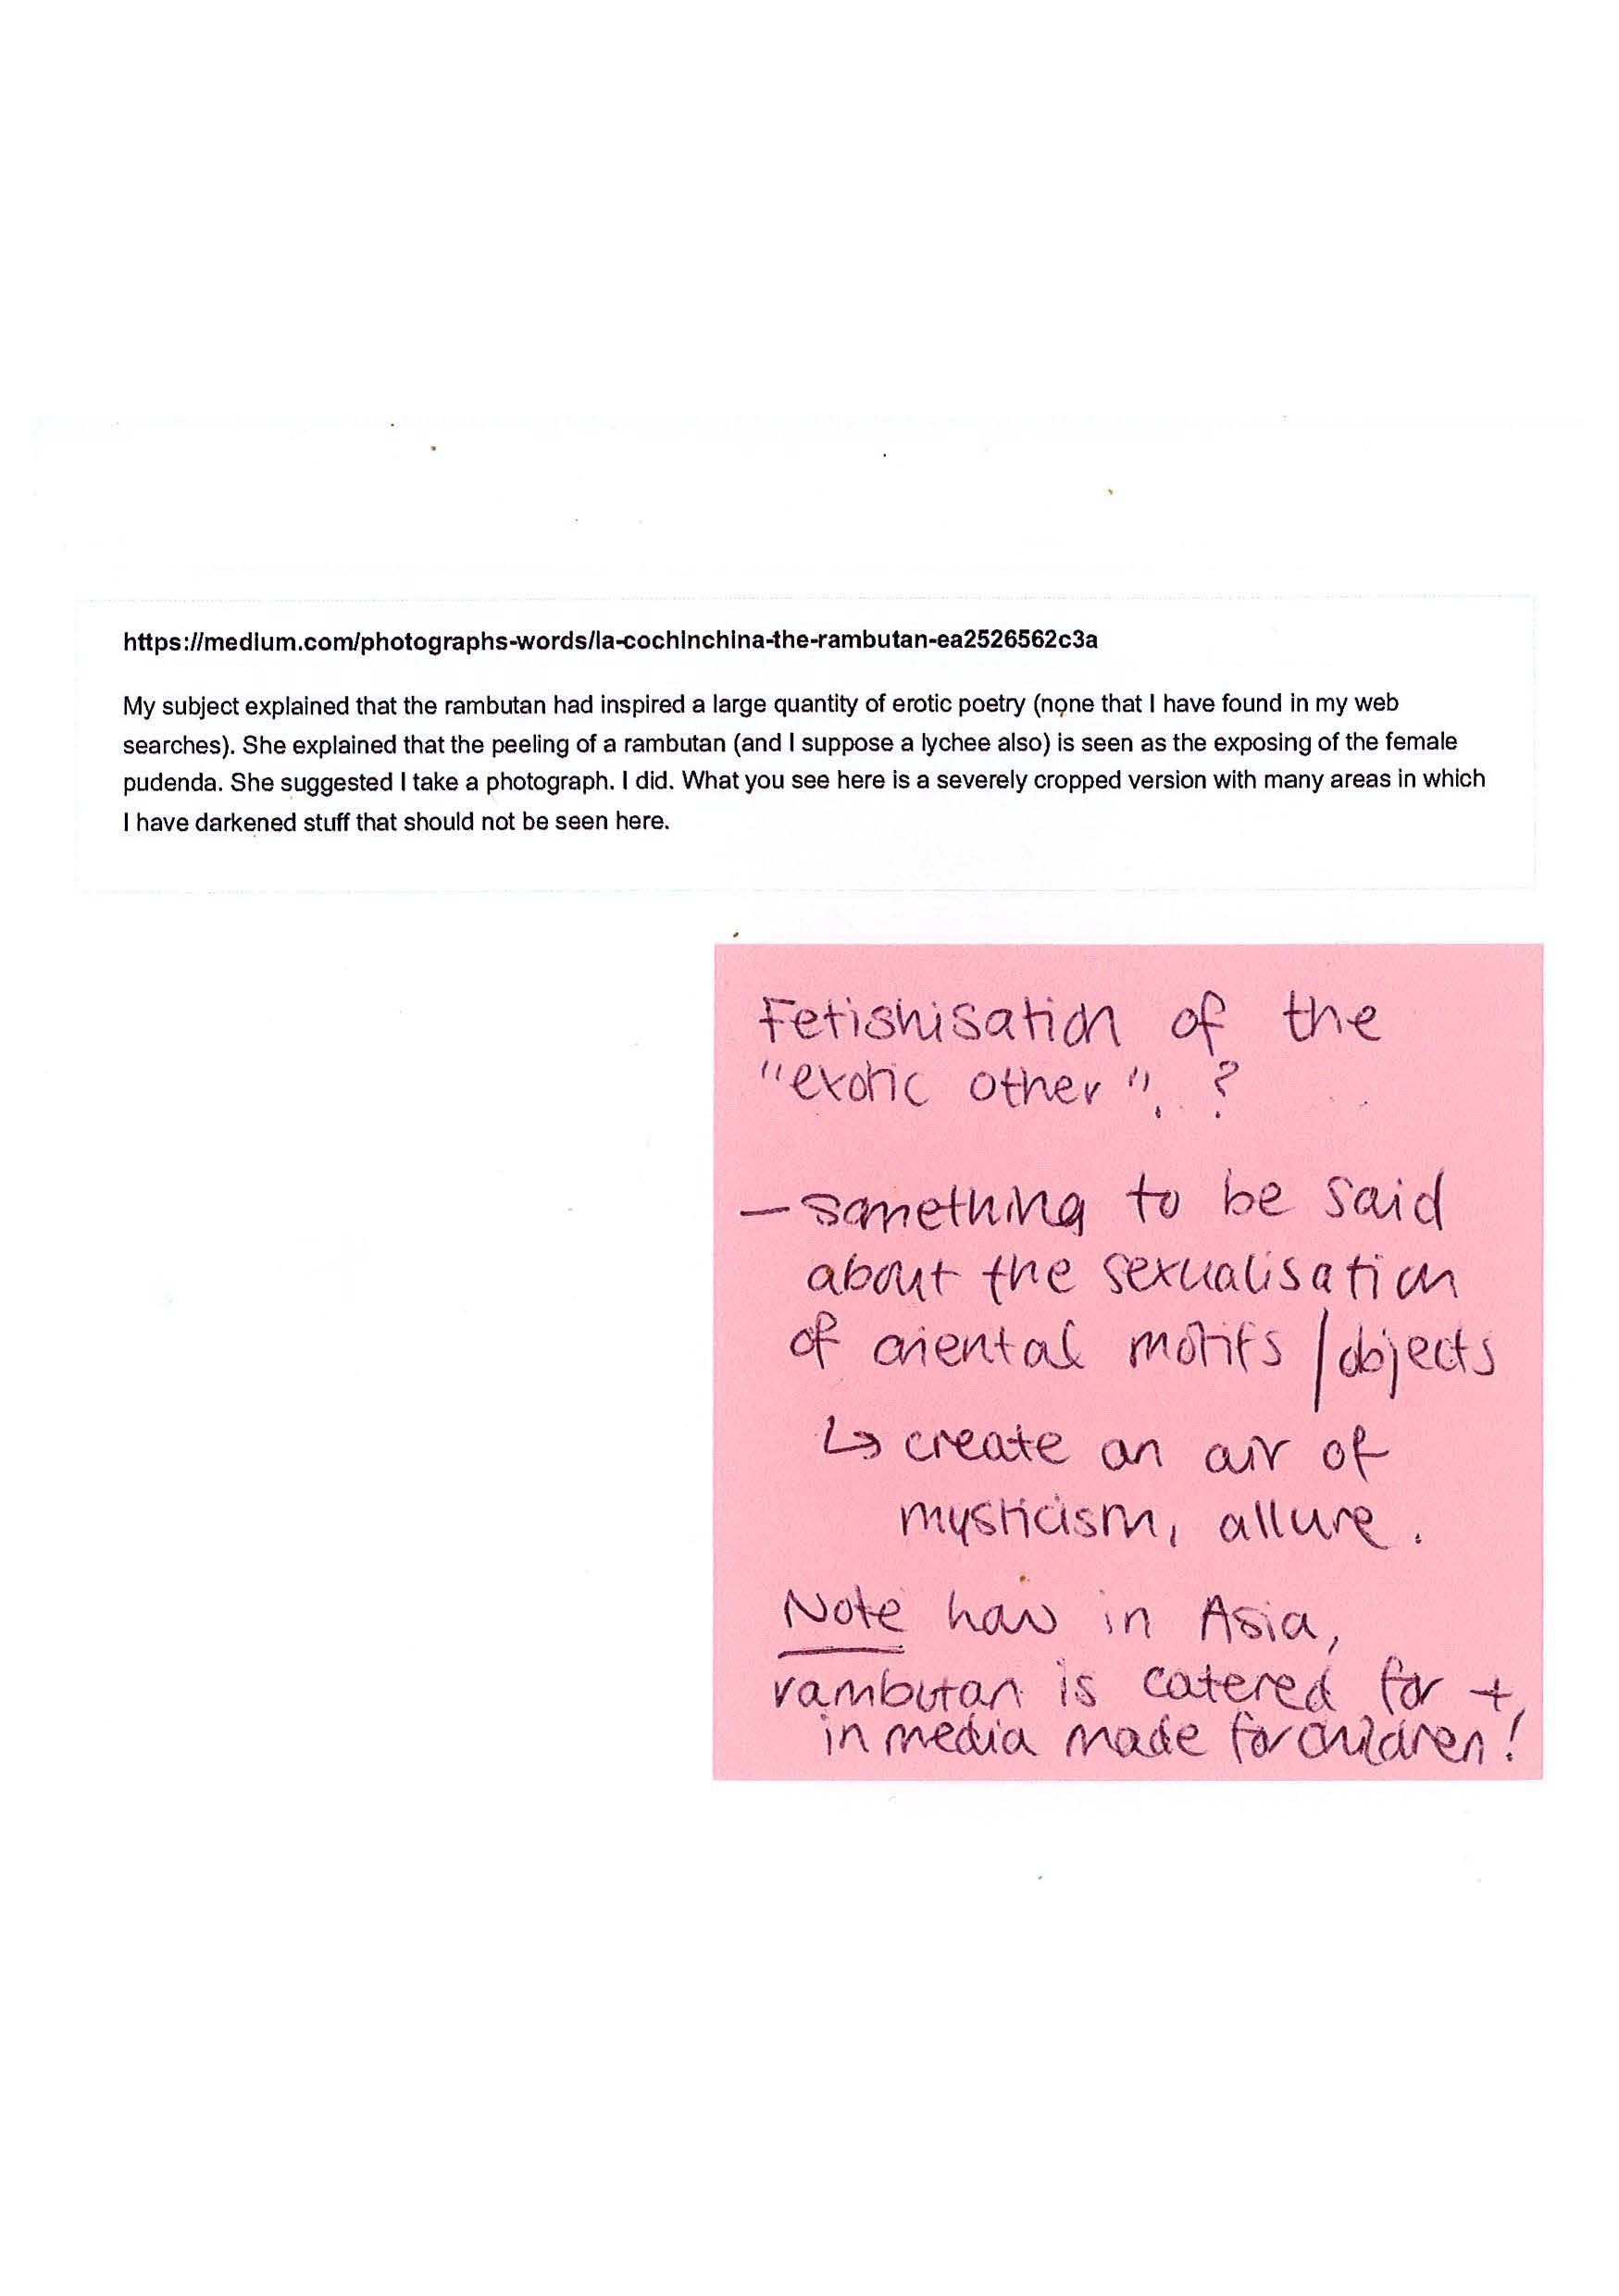 https://medium.com/photographs-words/la-cochinchina-the-rambutan-ea2526562c3a
My subject explained that the rambutan had inspired a large quantity of erotic poetry (none that I have found in my web
searches). She explained that the peeling of a rambutan (and I suppose a lychee also) is seen as the exposing of the female
pudenda. She suggested I take a photograph. I did. What you see here is a severely cropped version with many areas in which
I have darkened stuff that should not be seen here.
Fetishisation of the
"exotic other". ?
— something to be said
about the sexualisation
of oriental motifs / objects
↳ create an air of
mysticism, allure.
Note how in Asia,
rambutan is catered for +
in media made for children!